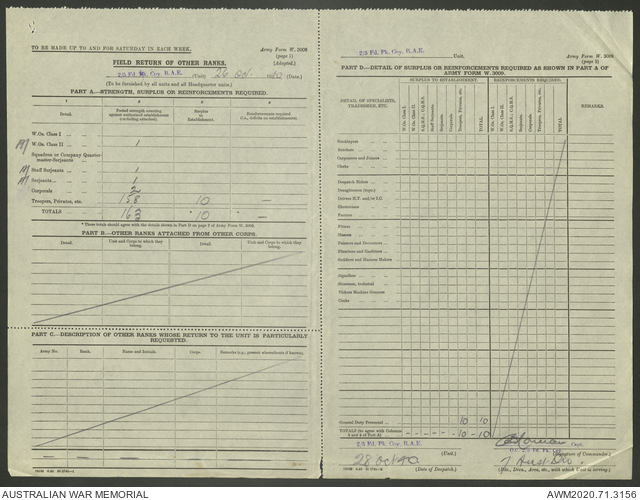 TO BE MADE UP TO AND FOR SATURDAY IN EACH WEEK.
Army Form W. 3009
(page 1)
(Adapted.)
FIELD RETURN OF OTHER RANKS.
2/3 Fd. Pk. Coy. R.A.E. (Unit) 26 Oct. (Date.)
(To be furnished by all units and all Headquarter units.)
PART A.—STRENGTH, SURPLUS OR REINFORCEMENTS REQUIRED.
1 2 3 4
Detail. Posted strength counting against authorized establishment (excluding attached). Surplus to Establishment. Reinforcements required
W.Os. Class I
W.Os. Class II 1
Squadron or Company Quarter-
master-Serjeants
Staff Serjeants 1
Serjeants 1
Corporals 2
Troopers, Privates, etc. 158 10 —
TOTALS 163 * 10 * —
* These totals should agree with the details shown in Part D on page 2 of Army Form W. 3009.
PART B.—OTHER RANKS ATTACHED FROM OTHER CORPS.
Detail. Unit and Corps to which they belong. Detail. Unit and Corps to which they belong.
PART C.—DESCRIPTION OF OTHER RANKS WHOSE RETURN TO THE UNIT IS PARTICULARLY
REQUESTED.
Army No. Rank. Name and Initials. Corps. Remarks (e.g., present whereabouts if known).
2/3 Fd. Pk. Coy. R.A.E. Unit.
Army Form W. 3009
(page 2)
PART D.—DETAIL OF SURPLUS OR REINFORCEMENTS REQUIRED AS SHOWN IN PART A OF
ARMY FORM W.3009.
SURPLUS TO ESTABLISHMENT. REINFORCEMENTS REQUIRED.
DETAIL OF SPECIALISTS, TRADESMEN, ETC.
W.Os. Class I.
W.Os. Class II.
S.Q.M.S., C.Q.M.S.
Staff Serjeants.
Serjeants.
Corporals.
Troopers, Privates, etc.
TOTAL
W.Os. Class I.
W.Os. Class II.
S.Q.M.S., C.Q.M.S.
Staff Serjeants.
Serjeants.
Corporals.
Troopers, Privates, etc.
TOTAL
REMARKS.
Butchers
Carpenters and Joiners
Clerks
Despatch Riders
Draughtsmen (topo)
Drivers M.T. and/or I.C.
Electricians
Farriers
Fitters
Masons
Painters and Decorators
Plumbers and Gasfitters
Saddlers and Harness Makers
Signallers
Storemen, technical
Vickers Machine Gunners
Cooks
General Duty Personnel 10 10
TOTALS (to agree with Columns 3 and 4 of Part A) - - - - - - 10 - 10 -
2/3 Fd. Pk. Coy. R.A.E. (Unit.)
Capt.
(Signature of Commander.)
28 Oct 40 (Date of Despatch.)
7 Aust Div
(Div., Area, etc., with which Unit is serving.)
AUSTRALIAN WAR MEMORIAL
AWM2020.71.3156